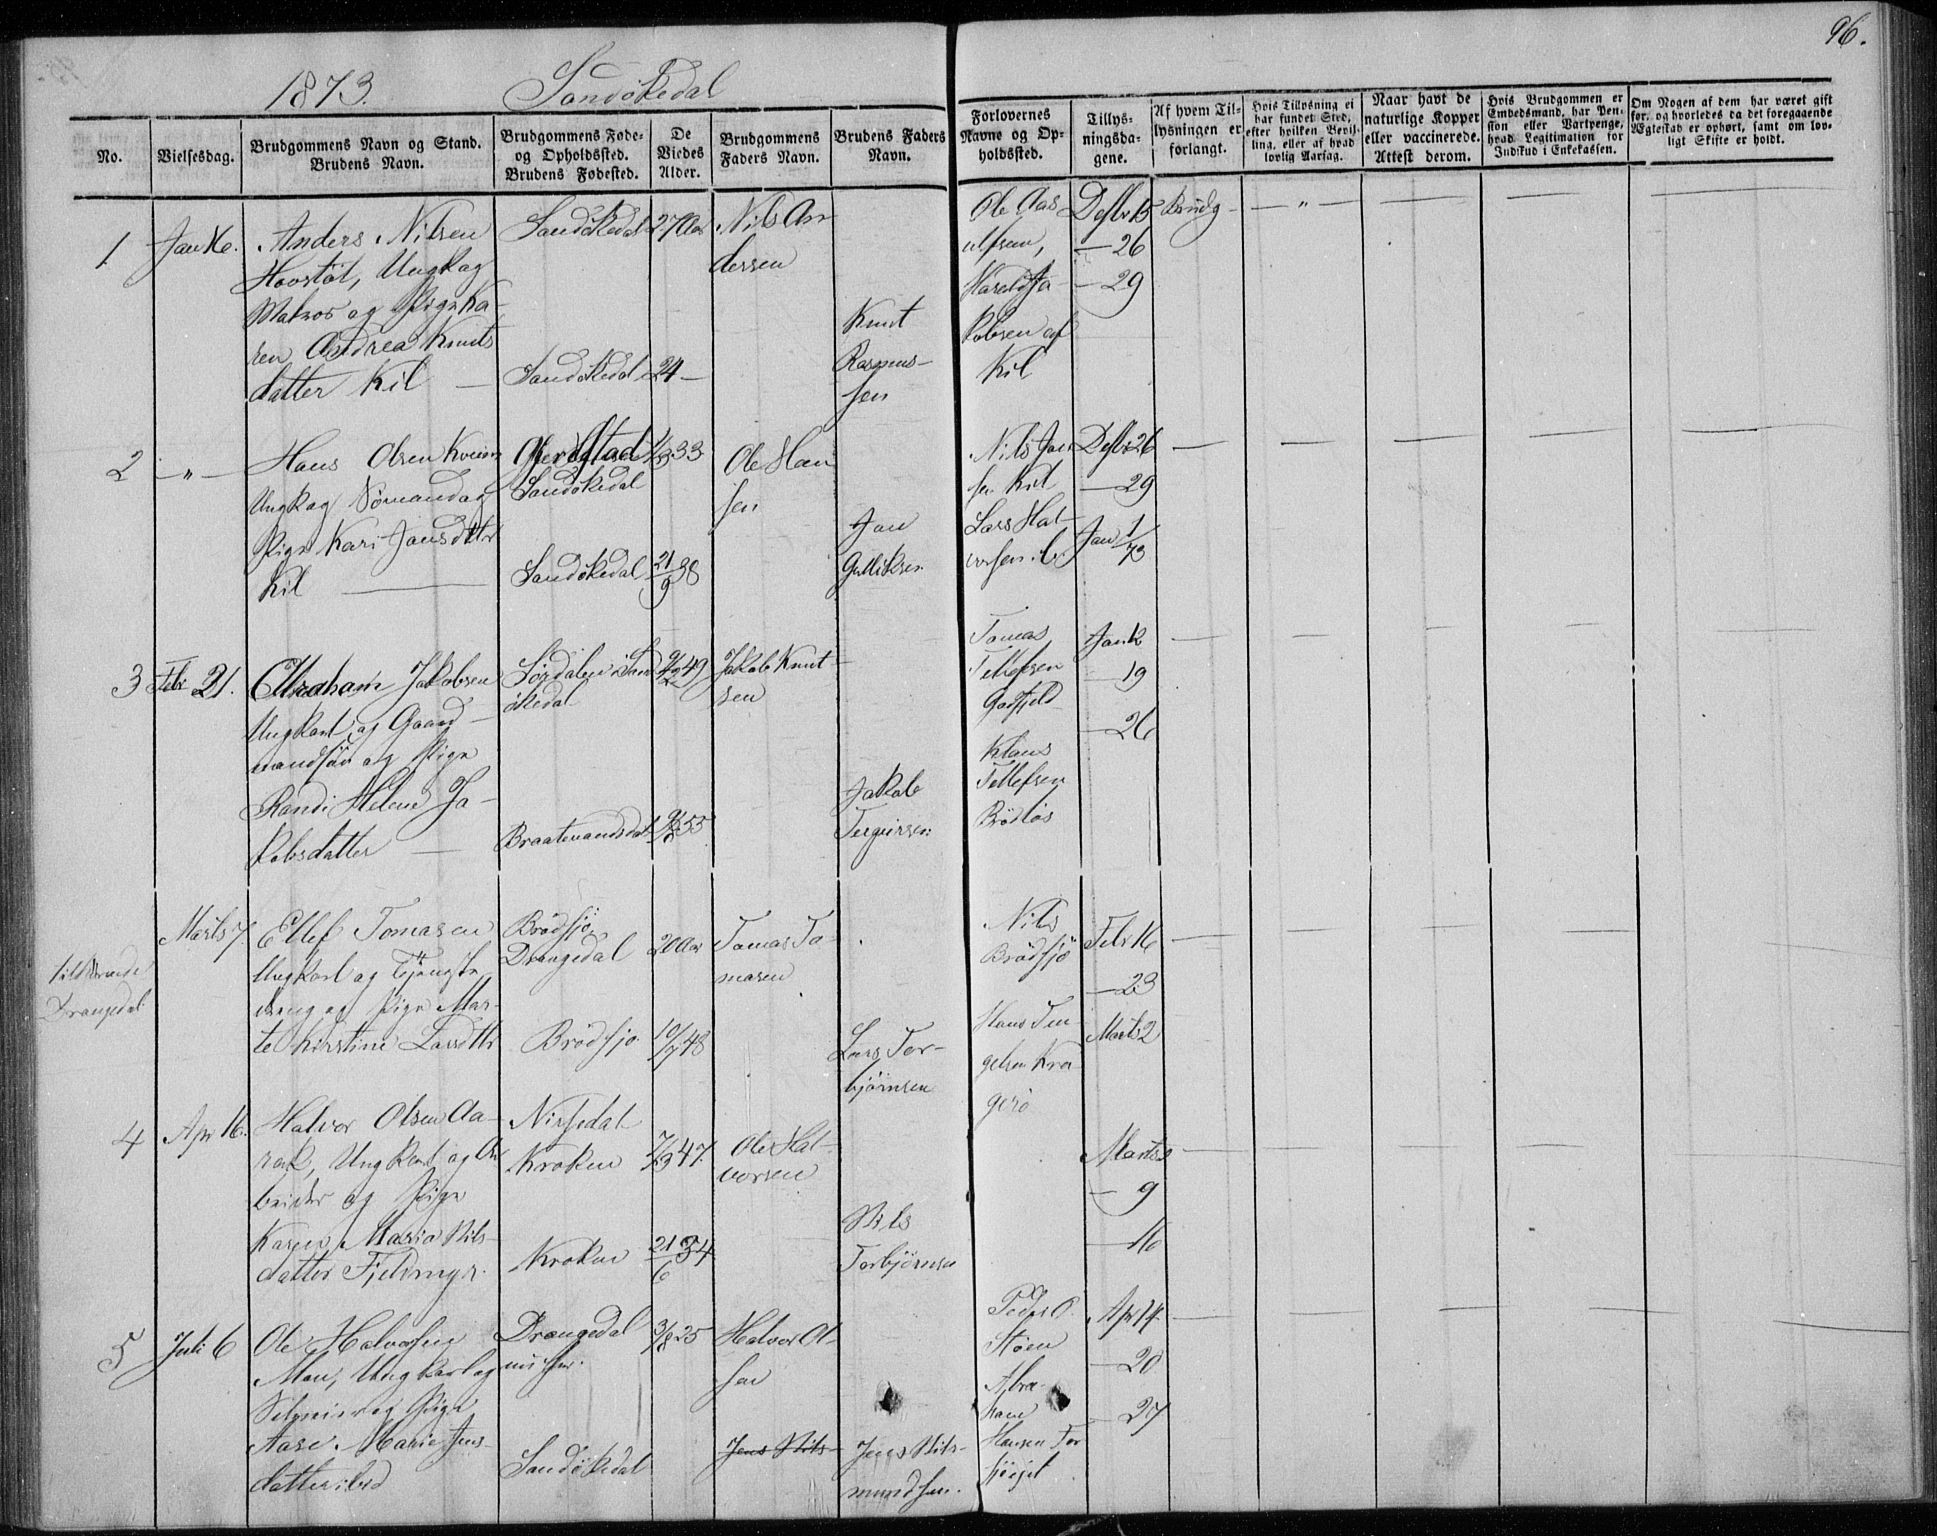 96.
1873. Sandökedal
No.
Vielsesdag.
Brudgommens Navn og Stand.
Brudens Navn.
Brudgommens Føde-
og Opholdssted.
Brudens Fødested.
De
Viedes
Alder.
Brudgommens
Faders Navn.
Brudens Faders
Navn.
Forlovernes
Navne og Op-
holdssted.
Tillys-
ningsda-
gene.
Af hvem Til-
lysningen er
forlangt.
Hvis Tillysning ei
har fundet Sted,
efter hvilken Bevil-
ling, eller af hvad
lovlig Aarsag.
Naar havt de
naturlige Kopper
eller vaccinerede.
Attest derom.
Hvis Brudgommen er
Embedsmand, har Pen-
sion eller Vartpenge,
hvad Legitimation for
Indskud i Enkekassen.
Om Nogen af dem har været gift
før, og hvorledes da det foregaaende
Ægteskab er ophørt, samt om lov-
ligt Skifte er holdt.
1
Jan 16.
Anders Nilsen
Hovstöt, Ungk og
Matros og Pige Ka-
ren Andrea Knuts
datter Kil
Sandökedal
Sandökedal
27 Aar
24 —
Nils An
dersen
Knut
Rasmus-
sen
Ole Aas
ulfsen,
Harald Ja-
kobsen af
Kil
Desbr 15
— 26
— 29
Brudg — „ —
2
— „ —
Hans Olsen
Ungk og Sömand og
Pige Kari Jansdttr
Kil
Gjerestad
Sandökedal
Sandökedal
33
21/9 38
Ole Han
sen
Jan
Gulliksen
Nils Jan
sen Kil
Lars Hal-
vorsen ib.
Desbr 26
— 29
Jan 1/73
3
Febr 21.
Abraham Jakobsen
Ungkarl og Gaard-
mandssön og Pige
Randi Helene Ja-
kobsdatter
Sördalen i Sand
ökedal
Braatemandsdal
49
55
Jakob Knut-
sen
Jakob
Tergiersen
Tomas
Tellefsen
Gafjeld
Klaus
Tellefsen
Brödlös
Jan 12
— 19
— 26
Drangedal
Marts 7.
Ellef Tomasen
Ungkarl og Tjeneste
dreng og Pige Mar-
te Kirstine Larsdttr
Brödsjö
Drangedal
Brödsjö
20 Aar
10/7 48
Tomas To-
masen
Lars Tor-
björnsen
Nils
Brödsjö
Hans Ten
gelsen Kra
gerö
Febr 16
— 23
Marts 2
4
Apr 16.
Halvor Olsen Aa-
rak, Ungkarl og Ar
beider og Pige
Karen Maria Nils-
datter Fjeldmyr.
Nissedal
Kroken
Kroken
7/9 47.
21/6 34
Ole Hal-
vorsen
Nils
Torbjörnsen
Marts 2
— 9
— 16
5
Juli 6
Ole Halvorsen
Moen, Ungkarl og
Selveier og Pige
Aase Marie Jens-
datter ibid
Drangedal
Sandökedal
3/8 25
Halvor Ol-
sen
Jens Nils-
Jens Nils-
mundsen.
Peder O.
Stöen
Abra-
ham
Hansen
Apr 14
— 20
— 27